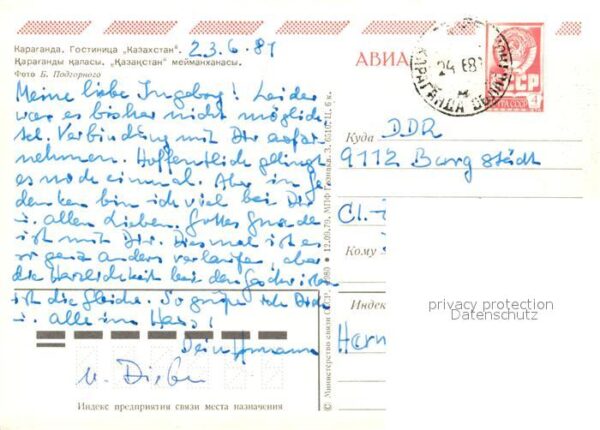 Караганда. Гостиница „Казахстан".
23.6.81
Қарағанды қаласы. „Қазақстан" мейманханасы.
Фото Б. Подгорного
АВИА
24 6 81
КАРАГАНДА ОБЛАСТНОЙ
СССР
4
Meine liebe Ingeborg! Leider
war es bisher nicht möglich
tel. Verbindung mit Dir aufzu-
nehmen. Hoffentlich gelingt
es noch einmal. Aber in Ge-
danken bin ich viel bei Dir
u. allen Lieben. Gottes Gnade
ist mit Dir. Diesmal ist es
ganz anders verlaufen, aber
die Herzlichkeit bei den Geschwistern
ist die gleiche. So grüße ich Dich
u. alle im Haus!
Dein Hermann
u.
Куда DDR
9112 Burgstädt
Cl.-
Кому
Индекс
privacy protection
Datenschutz
© Министерство связи СССР. 1980 • 12.09.79. МПФ Гознака. З. 6 к.
Индекс предприятия связи места назначения